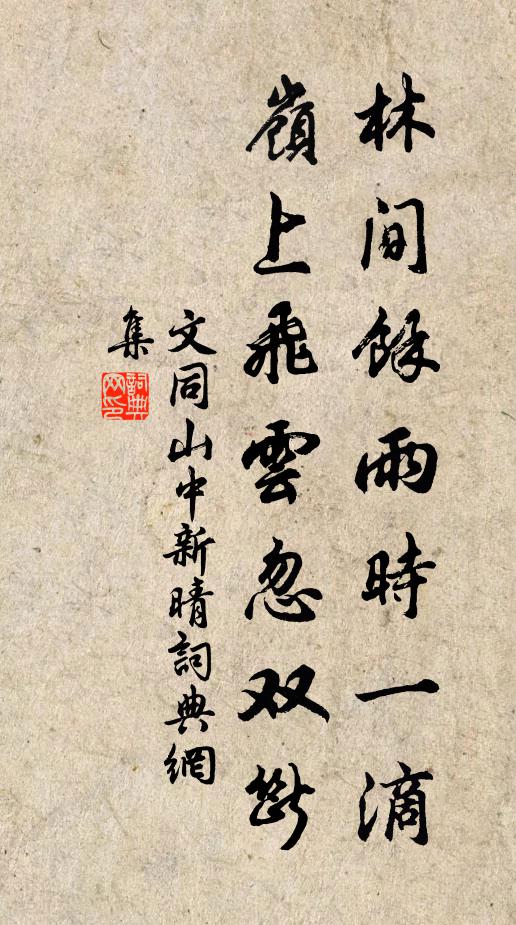 林間餘雨時一滴
嶺上飛雲忽双斷
文同山中新晴詞典網
集
詞典
网印